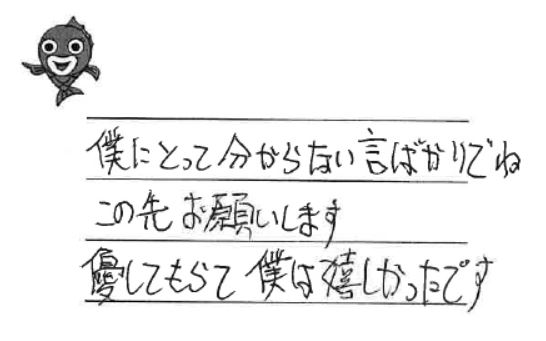 僕にとって分からない言ばかりでね
この先お願いします
優してもらて僕は嬉しかったです